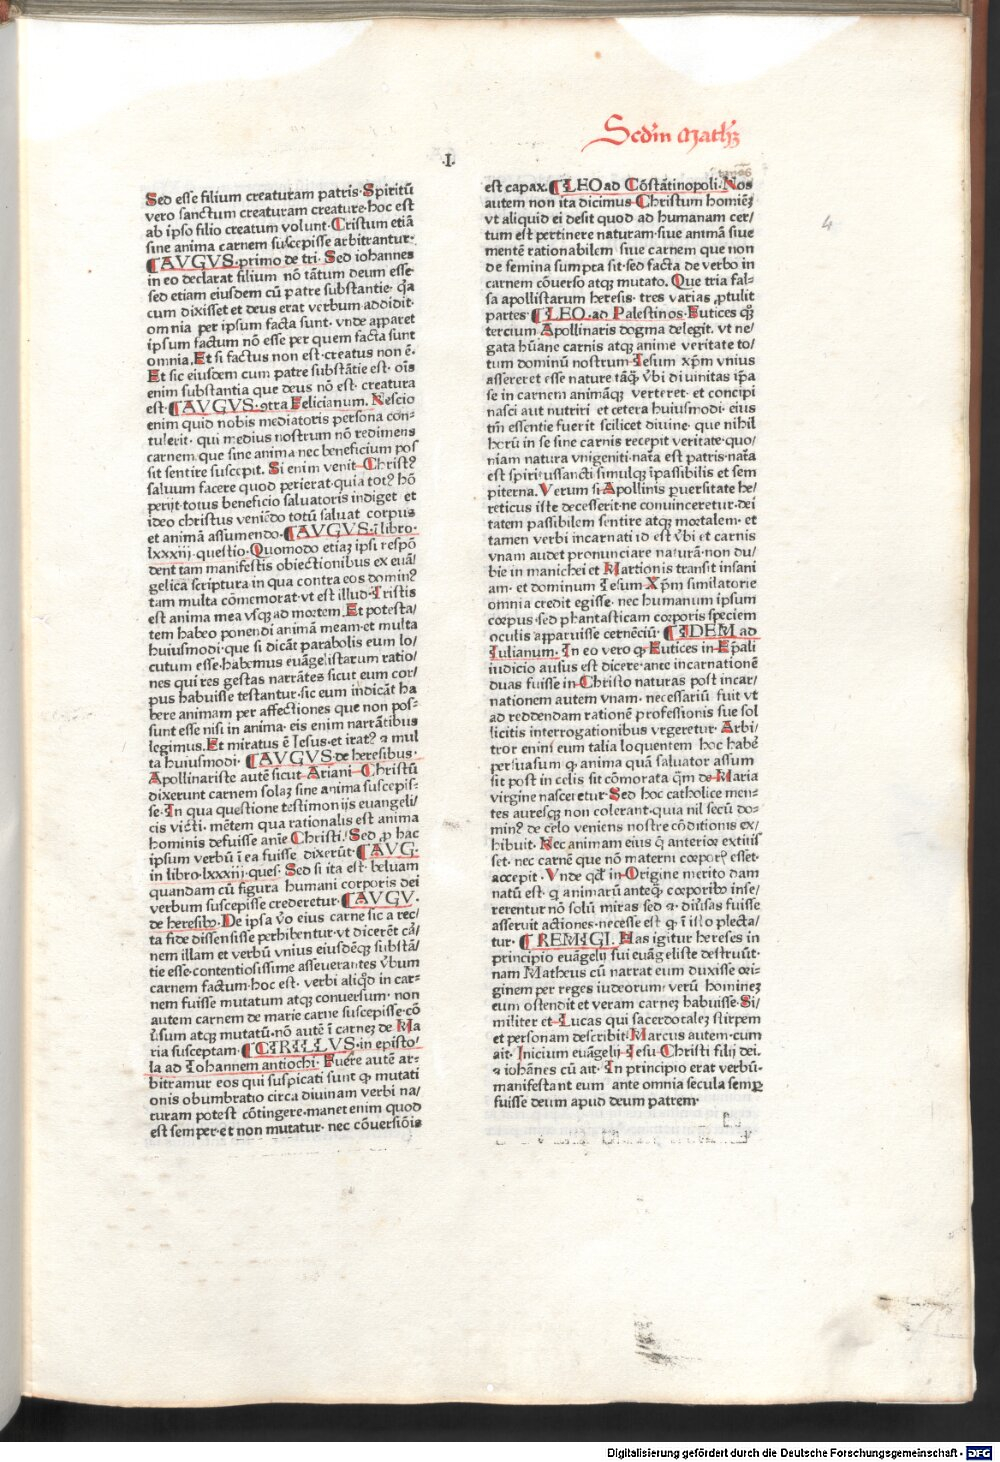 Scd'm Math'
.I.
4
Sed esse filium creaturam patris. Spiritū
vero sanctum creaturam creature. hoc est
ab ipso filio creatum volunt. Cristum etiā
sine anima carnem suscepisse arbitrantur.
¶AVGVS. primo de tri. Sed iohannes
in eo declarat filium nō tātum deum esse.
sed etiam eiusdem cū patre substantie. q̄a
cum dixisset et deus erat verbum addidit.
omnia per ipsum facta sunt. vnde apparet
ipsum factum nō esse per quem facta sunt
omnia. Et si factus non est. creatus non ē.
Et sic eiusdem cum patre substātie est. oīs
enim substantia que deus nō est creatura
est. ¶AVGVS. ꝯtra Felicianum. Nescio
enim quid nobis mediatoris persona con-
tulerit. qui medius nostrum nō redimens
carnem. que sine anima nec beneficium pos
sit sentire suscepit. Si enim venit Christꝰ
saluum facere quod perierat. quia totꝰ hō
perijt totus beneficio saluatoris indiget et
ideo christus veniēdo totū saluat corpus
et animā assumendo. ¶AVGVS. ī libro.
lxxxiij. questio. Quomodo etiaꝫ ipsi respō
dent tam manifestis obiectionibus ex euā/
gelica scriptura in qua contra eos dominꝰ
tam multa cōmemorat. vt est illud. Tristis
est anima mea vsqꝫ ad mortem. Et potesta/
tem habeo ponendi animā meam. et multa
huiusmodi. que si dicāt parabolis eum lo/
cutum esse. habemus euāgelistarum ratio/
nes qui res gestas narrātes sicut eum cor/
pus habuisse testantur. sic eum indicāt ha
bere animam per affectiones que non pos-
sunt esse nisi in anima. eis enim narrātibus
legimus. Et miratus ē Iesus. et iratꝰ ⁊ mul
ta huiusmodi. ¶AVGVS. de heresibus.
Apollinariste autē sicut Ariani Christū
dixerunt carnem solaꝫ sine anima suscepis-
se. In qua questione testimonijs euangeli/
cis victi. mētem qua rationalis est anima
hominis defuisse anie Christi. Sed ꝓ hac
ipsum verbū ī ea fuisse dixerūt. ¶AVG.
in libro. lxxxiij. ques. Sed si ita est. beluam
quandam cū figura humani corporis dei
verbum suscepisse crederetur. ¶AVGV.
de heresibꝰ. De ipsa v̄o eius carne sic a rec/
ta fide dissensisse perhibentur. vt dicerēt car̄/
nem illam et verbū vnius eiusdēqꝫ substā/
tie esse. contentiosissime asseuerantes v̄bum
carnem factum. hoc est. verbi aliqd̄ in car-
nem fuisse mutatum atqꝫ conuersum. non
autem carnem de marie carne suscepisse. cō
ūsum atqꝫ mutatū. nō autē ī carneꝫ de Ma
ria susceptam. ¶CIRILLVS. in episto/
la ad Iohannem antiochi. Fuere autē ar-
bitramur eos qui suspicati sunt ꝙ mutati
onis obumbratio circa diuinam verbi na/
turam potest cōtingere. manet enim quod
est semper. et non mutatur. nec cōuersiōis
est capax. ¶LEO ad Cōstātinopoli. Nos
autem non ita dicimus Christum homineꝫ
vt aliquid ei desit quod ad humanam cer/
tum est pertinere naturam. siue animā siue
mentē rationabilem siue carnem que non
de femina sumpta sit. sed facta de verbo in
carnem cōuerso atqꝫ mutato. Que tria fal-
sa apollistarum heresis. tres varias ꝓtulit
partes. ¶LEO. ad Palestinos. Eutices qꝫ
tercium Apollinaris dogma delegit. vt ne/
gata hūane carnis atqꝫ anime veritate to/
tum dominū nostrum Iesum xp̄m vnius
assereret esse nature tāq̄ v̄bi diuinitas ip̄a
se in carnem animāqꝫ verteret. et concipi
nasci aut nutriri et cetera huiusmodi. eius
tm̄ essentie fuerit scilicet diuine. que nihil
horū in se sine carnis recepit veritate. quo/
niam natura vnigeniti nat̄a est patris. nat̄a
est spiritussancti simulqꝫ īpassibilis et sem
piterna. Verum si Apollinis ꝑuersitate he/
reticus iste decesserit. ne conuinceretur. dei
tatem passibilem sentire atqꝫ mortalem. et
tamen verbi incarnati id est v̄bi et carnis
vnam audet pronunciare naturā. non du/
bie in manichei et Martionis transit insani
am. et dominum Iesum Xp̄m similatorie
omnia credit egisse. nec humanum ipsum
corpus. sed phantasticam corporis speciem
oculis apparuisse cernēciū. ¶IDEM ad
Iulianum. In eo vero ꝙ Eutices in Ep̄ali
iudicio ausus est dicere. ante incarnationē
duas fuisse in Christo naturas post incar/
nationem autem vnam. necessariū fuit vt
ad reddendam rationē professionis sue sol
licitis interrogationibus vrgeretur. Arbi/
tror enim eum talia loquentem hoc habē
persuasum ꝙ anima quā saluator assum
sit post in celis sit cōmorata q̄m de Maria
virgine nasceretur. Sed hoc catholice men-
tes auresqꝫ non colerant. quia nil secū do-
minꝰ de celo veniens nostre cōditionis ex/
hibuit. Nec animam eius q̄ anterior extitis
set. nec carnē que nō materni corporꝭ esset.
accepit. Vnde qd̄ in Origine merito dam
natū est. ꝙ animarū anteqꝫ corporibꝰ inse/
rerentur nō solū miras sed ⁊ diūsas fuisse
asseruit actiones. necesse est ꝙ ī isto plecta/
tur. ¶REMIGI. Has igitur hereses in
principio euāgelij sui euāgeliste destruūt.
nam Matheus cū narrat eum duxisse ori/
ginem per reges iudeorum. verū hominez
eum ostendit et veram carneꝫ habuisse. Si
militer et Lucas qui sacerdotaleꝫ stirpem
et personam describit. Marcus autem. cum
ait. Inicium euāgelij Iesu Christi filij dei.
⁊ iohānes cū ait. In principio erat verbū.
manifestant eum ante omnia secula semꝑ
fuisse deum apud deum patrem.
Digitalisierung gefördert durch die Deutsche Forschungsgemeinschaft - DFG